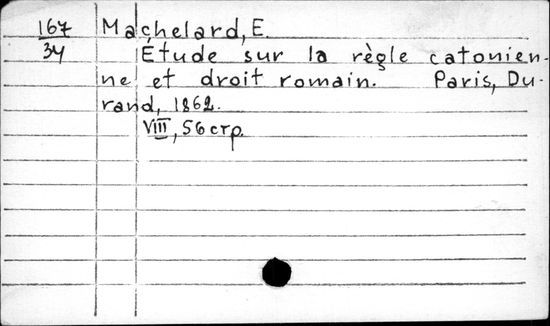 167 Machelard, E.
34 Étude sur la règle catonien-
ne et droit romain. Paris, Du-
rand, 1862.
VIII, 56 стр.